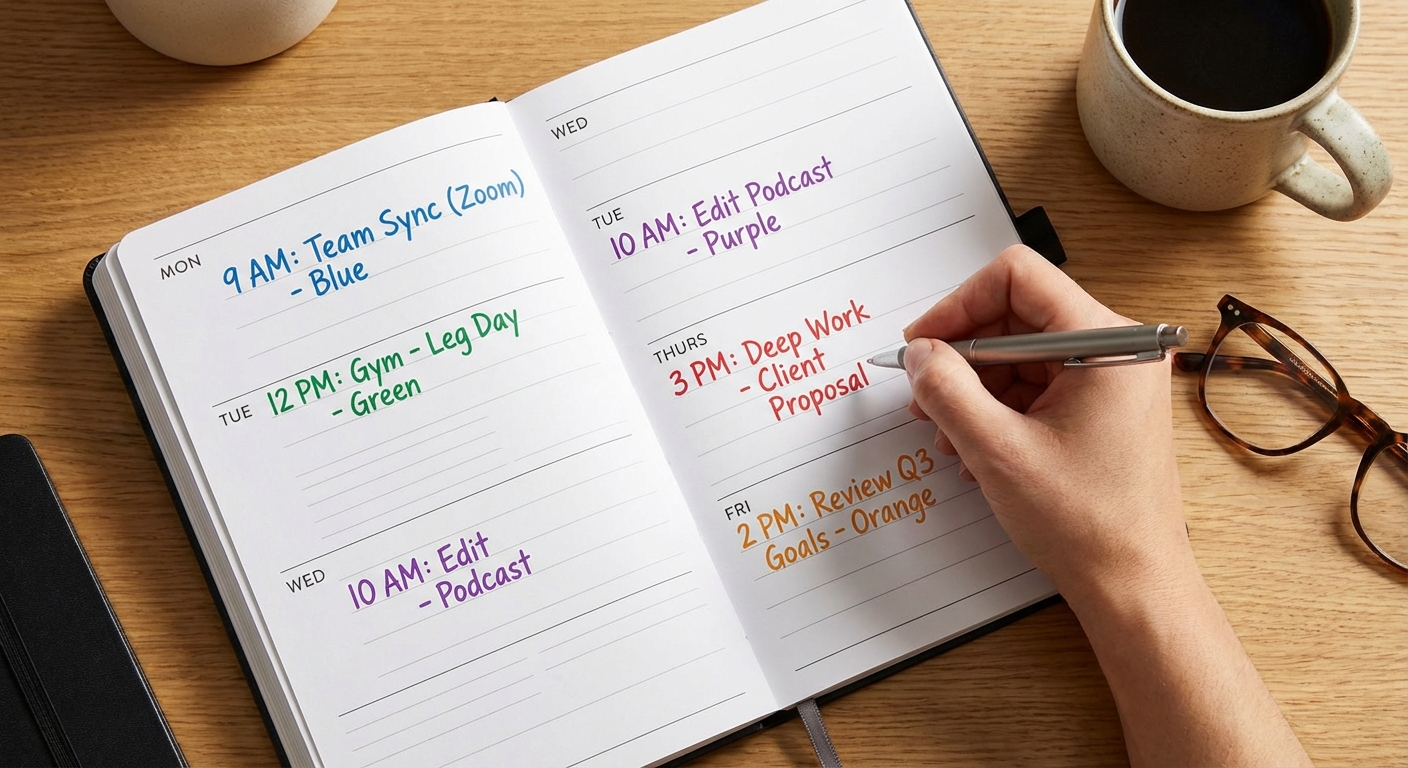 MON
9 AM: Team Sync (Zoom)
- Blue
TUE
12 PM: Gym - Leg Day
- Green
WED
10 AM: Edit
- Podcast
WED
TUE
10 AM: Edit Podcast
- Purple
THURS
3 PM: Deep Work
- Client
Proposal
FRI
2 PM: Review Q3
Goals - Orange